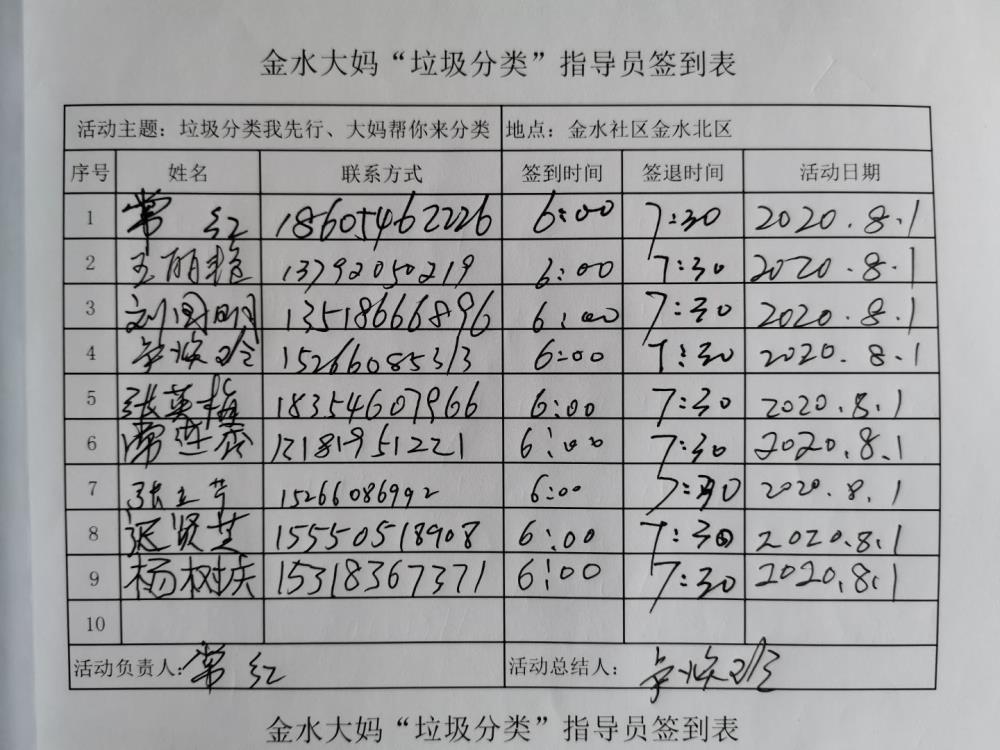 金水大妈“垃圾分类”指导员签到表
活动主题：垃圾分类我先行、大妈帮你来分类 地点：金水社区金水北区
序号 姓名 联系方式 签到时间 签退时间 活动日期
1 常红 18605462226 6:00 7:30 2020.8.1
2 王丽艳 13792050219 6:00 7:30 2020.8.1
3 刘国明 13518666896 6:00 7:30 2020.8.1
4 15266085313 6:00 7:30 2020.8.1
5 张英梅 18354607966 6:00 7:30 2020.8.1
6 常进 6:00 7:30 2020.8.1
7 张立芳 15266086992 6:00 7:30 2020.8.1
8 张贤芝 15550518908 6:00 7:30 2020.8.1
9 杨树庆 15318367371 6:00 7:30 2020.8.1
10
活动负责人：常红 活动总结人：
金水大妈“垃圾分类”指导员签到表